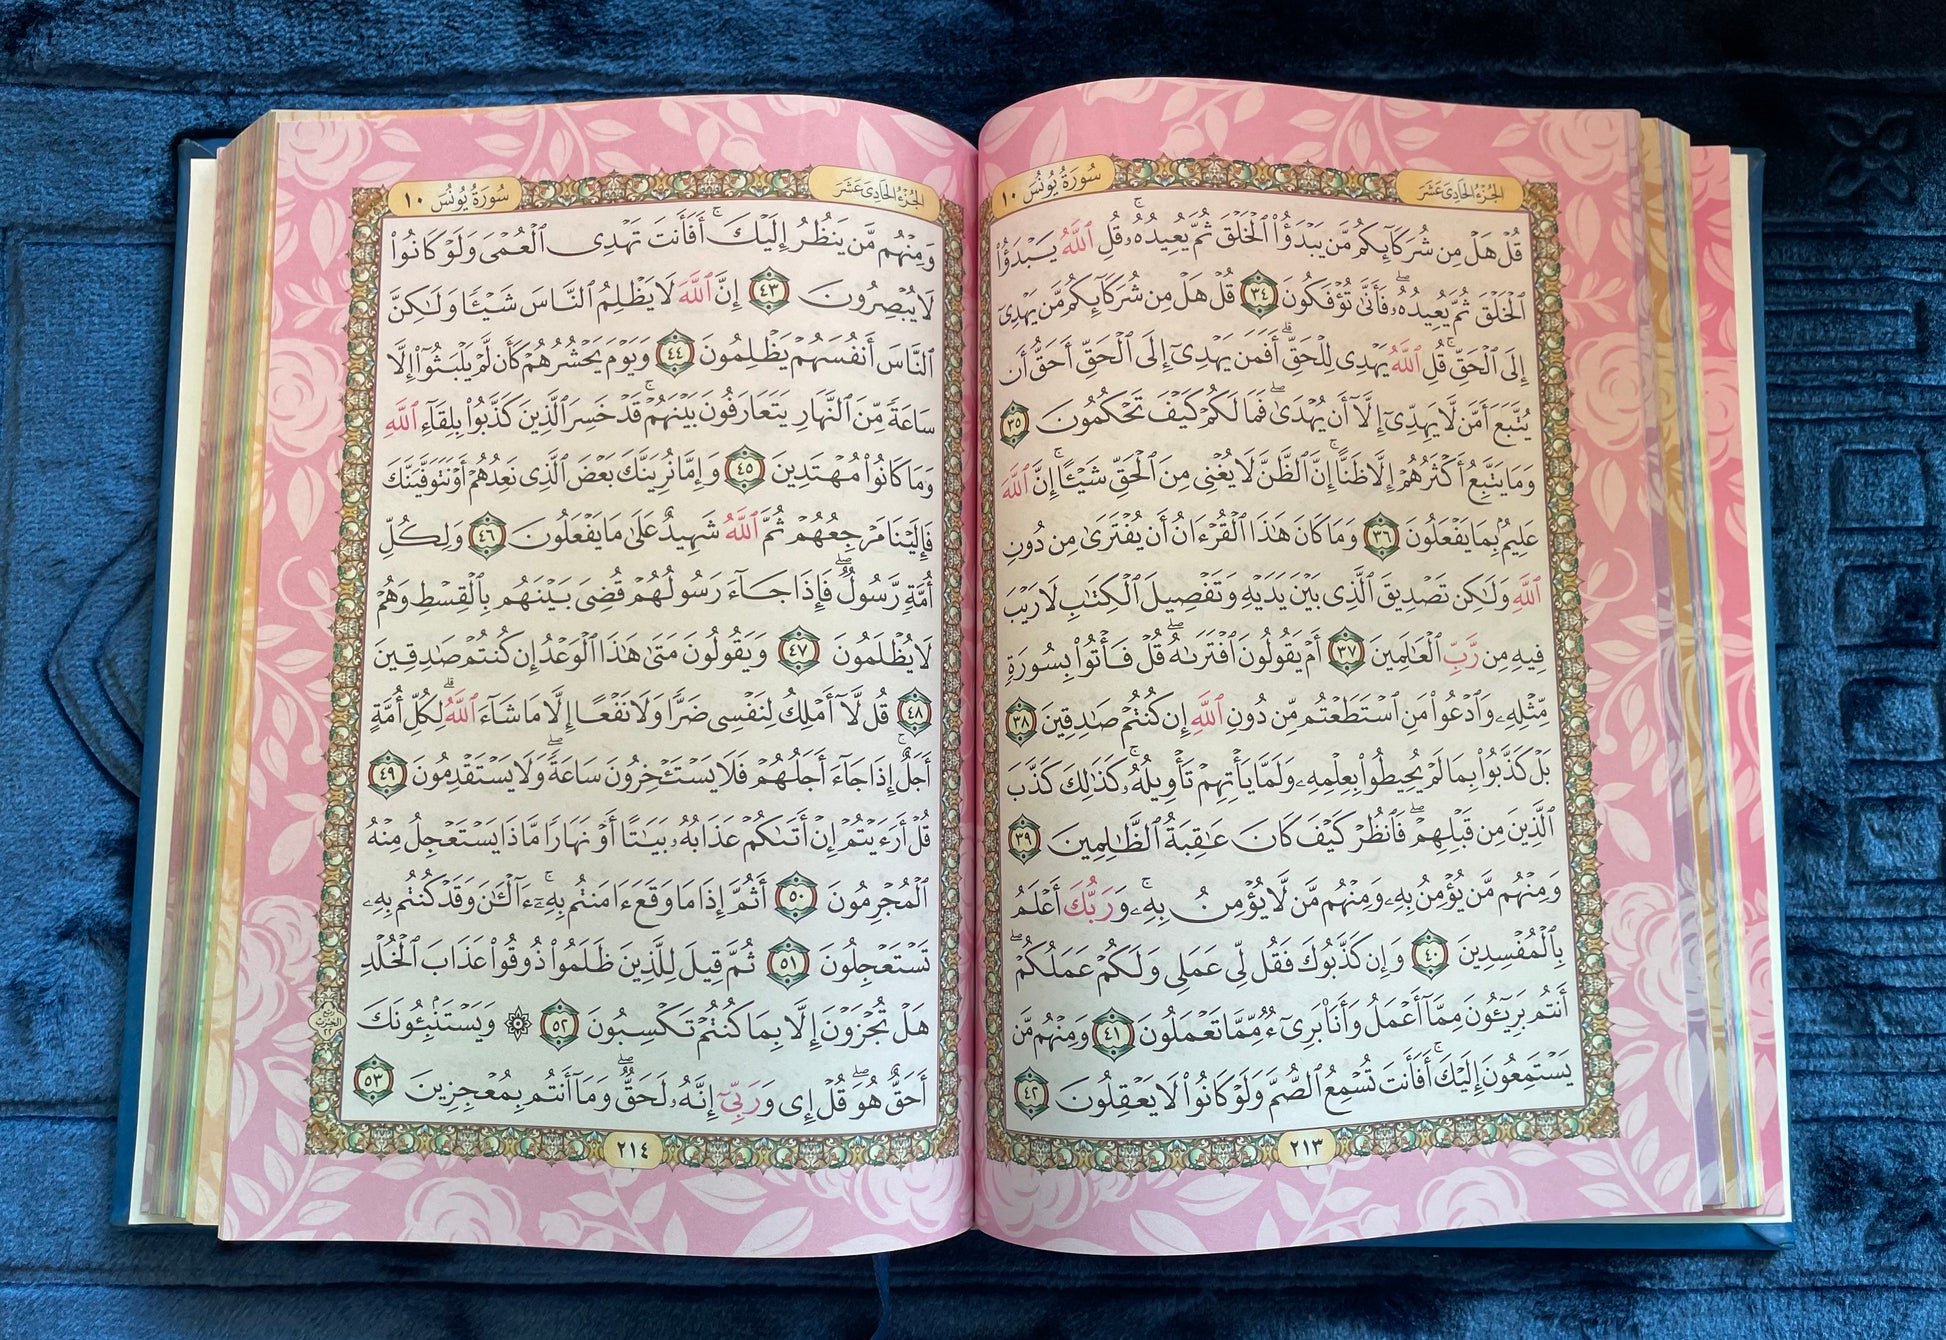 سُورَةُ يُونُسَ ١٠
الجُزْءُ الحَادِىَ عَشَرَ
قُلْ هَلْ مِن شُرَكَآئِكُم مَّن يَبْدَؤُا۟ ٱلْخَلْقَ ثُمَّ يُعِيدُهُۥ ۚ قُلِ ٱللَّهُ يَبْدَؤُا۟
ٱلْخَلْقَ ثُمَّ يُعِيدُهُۥ ۖ فَأَنَّىٰ تُؤْفَكُونَ ٣٤ قُلْ هَلْ مِن شُرَكَآئِكُم مَّن يَهْدِىٓ
إِلَى ٱلْحَقِّ ۚ قُلِ ٱللَّهُ يَهْدِى لِلْحَقِّ ۗ أَفَمَن يَهْدِىٓ إِلَى ٱلْحَقِّ أَحَقُّ أَن
يُتَّبَعَ أَمَّن لَّا يَهِدِّىٓ إِلَّآ أَن يُهْدَىٰ ۖ فَمَا لَكُمْ كَيْفَ تَحْكُمُونَ ٣٥
وَمَا يَتَّبِعُ أَكْثَرُهُمْ إِلَّا ظَنًّا ۚ إِنَّ ٱلظَّنَّ لَا يُغْنِى مِنَ ٱلْحَقِّ شَيْـًٔا ۚ إِنَّ ٱللَّهَ
عَلِيمٌۢ بِمَا يَفْعَلُونَ ٣٦ وَمَا كَانَ هَـٰذَا ٱلْقُرْءَانُ أَن يُفْتَرَىٰ مِن دُونِ
ٱللَّهِ وَلَـٰكِن تَصْدِيقَ ٱلَّذِى بَيْنَ يَدَيْهِ وَتَفْصِيلَ ٱلْكِتَـٰبِ لَا رَيْبَ
فِيهِ مِن رَّبِّ ٱلْعَـٰلَمِينَ ٣٧ أَمْ يَقُولُونَ ٱفْتَرَىٰهُ ۖ قُلْ فَأْتُوا۟ بِسُورَةٍ
مِّثْلِهِۦ وَٱدْعُوا۟ مَنِ ٱسْتَطَعْتُم مِّن دُونِ ٱللَّهِ إِن كُنتُمْ صَـٰدِقِينَ ٣٨
بَلْ كَذَّبُوا۟ بِمَا لَمْ يُحِيطُوا۟ بِعِلْمِهِۦ وَلَمَّا يَأْتِهِمْ تَأْوِيلُهُۥ ۚ كَذَٰلِكَ كَذَّبَ
ٱلَّذِينَ مِن قَبْلِهِمْ ۖ فَٱنظُرْ كَيْفَ كَانَ عَـٰقِبَةُ ٱلظَّـٰلِمِينَ ٣٩
وَمِنْهُم مَّن يُؤْمِنُ بِهِۦ وَمِنْهُم مَّن لَّا يُؤْمِنُ بِهِۦ ۚ وَرَبُّكَ أَعْلَمُ
بِٱلْمُفْسِدِينَ ٤٠ وَإِن كَذَّبُوكَ فَقُل لِّى عَمَلِى وَلَكُمْ عَمَلُكُمْ ۖ
أَنتُم بَرِيٓـُٔونَ مِمَّآ أَعْمَلُ وَأَنَا۠ بَرِىٓءٌ مِّمَّا تَعْمَلُونَ ٤١ وَمِنْهُم مَّن
يَسْتَمِعُونَ إِلَيْكَ ۚ أَفَأَنتَ تُسْمِعُ ٱلصُّمَّ وَلَوْ كَانُوا۟ لَا يَعْقِلُونَ ٤٢
٢١٣
سُورَةُ يُونُسَ ١٠
الجُزْءُ الحَادِىَ عَشَرَ
وَمِنْهُم مَّن يَنظُرُ إِلَيْكَ ۚ أَفَأَنتَ تَهْدِى ٱلْعُمْىَ وَلَوْ كَانُوا۟
لَا يُبْصِرُونَ ٤٣ إِنَّ ٱللَّهَ لَا يَظْلِمُ ٱلنَّاسَ شَيْـًٔا وَلَـٰكِنَّ
ٱلنَّاسَ أَنفُسَهُمْ يَظْلِمُونَ ٤٤ وَيَوْمَ يَحْشُرُهُمْ كَأَن لَّمْ يَلْبَثُوٓا۟ إِلَّا
سَاعَةً مِّنَ ٱلنَّهَارِ يَتَعَارَفُونَ بَيْنَهُمْ ۚ قَدْ خَسِرَ ٱلَّذِينَ كَذَّبُوا۟ بِلِقَآءِ ٱللَّهِ
وَمَا كَانُوا۟ مُهْتَدِينَ ٤٥ وَإِمَّا نُرِيَنَّكَ بَعْضَ ٱلَّذِى نَعِدُهُمْ أَوْ نَتَوَفَّيَنَّكَ
فَإِلَيْنَا مَرْجِعُهُمْ ثُمَّ ٱللَّهُ شَهِيدٌ عَلَىٰ مَا يَفْعَلُونَ ٤٦ وَلِكُلِّ
أُمَّةٍ رَّسُولٌ ۖ فَإِذَا جَآءَ رَسُولُهُمْ قُضِىَ بَيْنَهُم بِٱلْقِسْطِ وَهُمْ
لَا يُظْلَمُونَ ٤٧ وَيَقُولُونَ مَتَىٰ هَـٰذَا ٱلْوَعْدُ إِن كُنتُمْ صَـٰدِقِينَ
٤٨ قُل لَّآ أَمْلِكُ لِنَفْسِى ضَرًّا وَلَا نَفْعًا إِلَّا مَا شَآءَ ٱللَّهُ ۗ لِكُلِّ أُمَّةٍ
أَجَلٌ ۚ إِذَا جَآءَ أَجَلُهُمْ فَلَا يَسْتَـْٔخِرُونَ سَاعَةً ۖ وَلَا يَسْتَقْدِمُونَ ٤٩
قُلْ أَرَءَيْتُمْ إِنْ أَتَىٰكُمْ عَذَابُهُۥ بَيَـٰتًا أَوْ نَهَارًا مَّاذَا يَسْتَعْجِلُ مِنْهُ
ٱلْمُجْرِمُونَ ٥٠ أَثُمَّ إِذَا مَا وَقَعَ ءَامَنتُم بِهِۦٓ ۚ ءَآلْـَٔـٰنَ وَقَدْ كُنتُم بِهِۦ
تَسْتَعْجِلُونَ ٥١ ثُمَّ قِيلَ لِلَّذِينَ ظَلَمُوا۟ ذُوقُوا۟ عَذَابَ ٱلْخُلْدِ
هَلْ تُجْزَوْنَ إِلَّا بِمَا كُنتُمْ تَكْسِبُونَ ٥٢ ۞ وَيَسْتَنۢبِـُٔونَكَ
أَحَقٌّ هُوَ ۖ قُلْ إِى وَرَبِّىٓ إِنَّهُۥ لَحَقٌّ ۖ وَمَآ أَنتُم بِمُعْجِزِينَ ٥٣
٢١٤